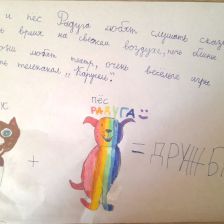 и пёс Радуга любят слушать сказ
время на свежем воздухе, печь блины
любят театр, очень веселые игры
телеканал „Карусель".
пёс
РАДУГА
+
= ДРУЖБ